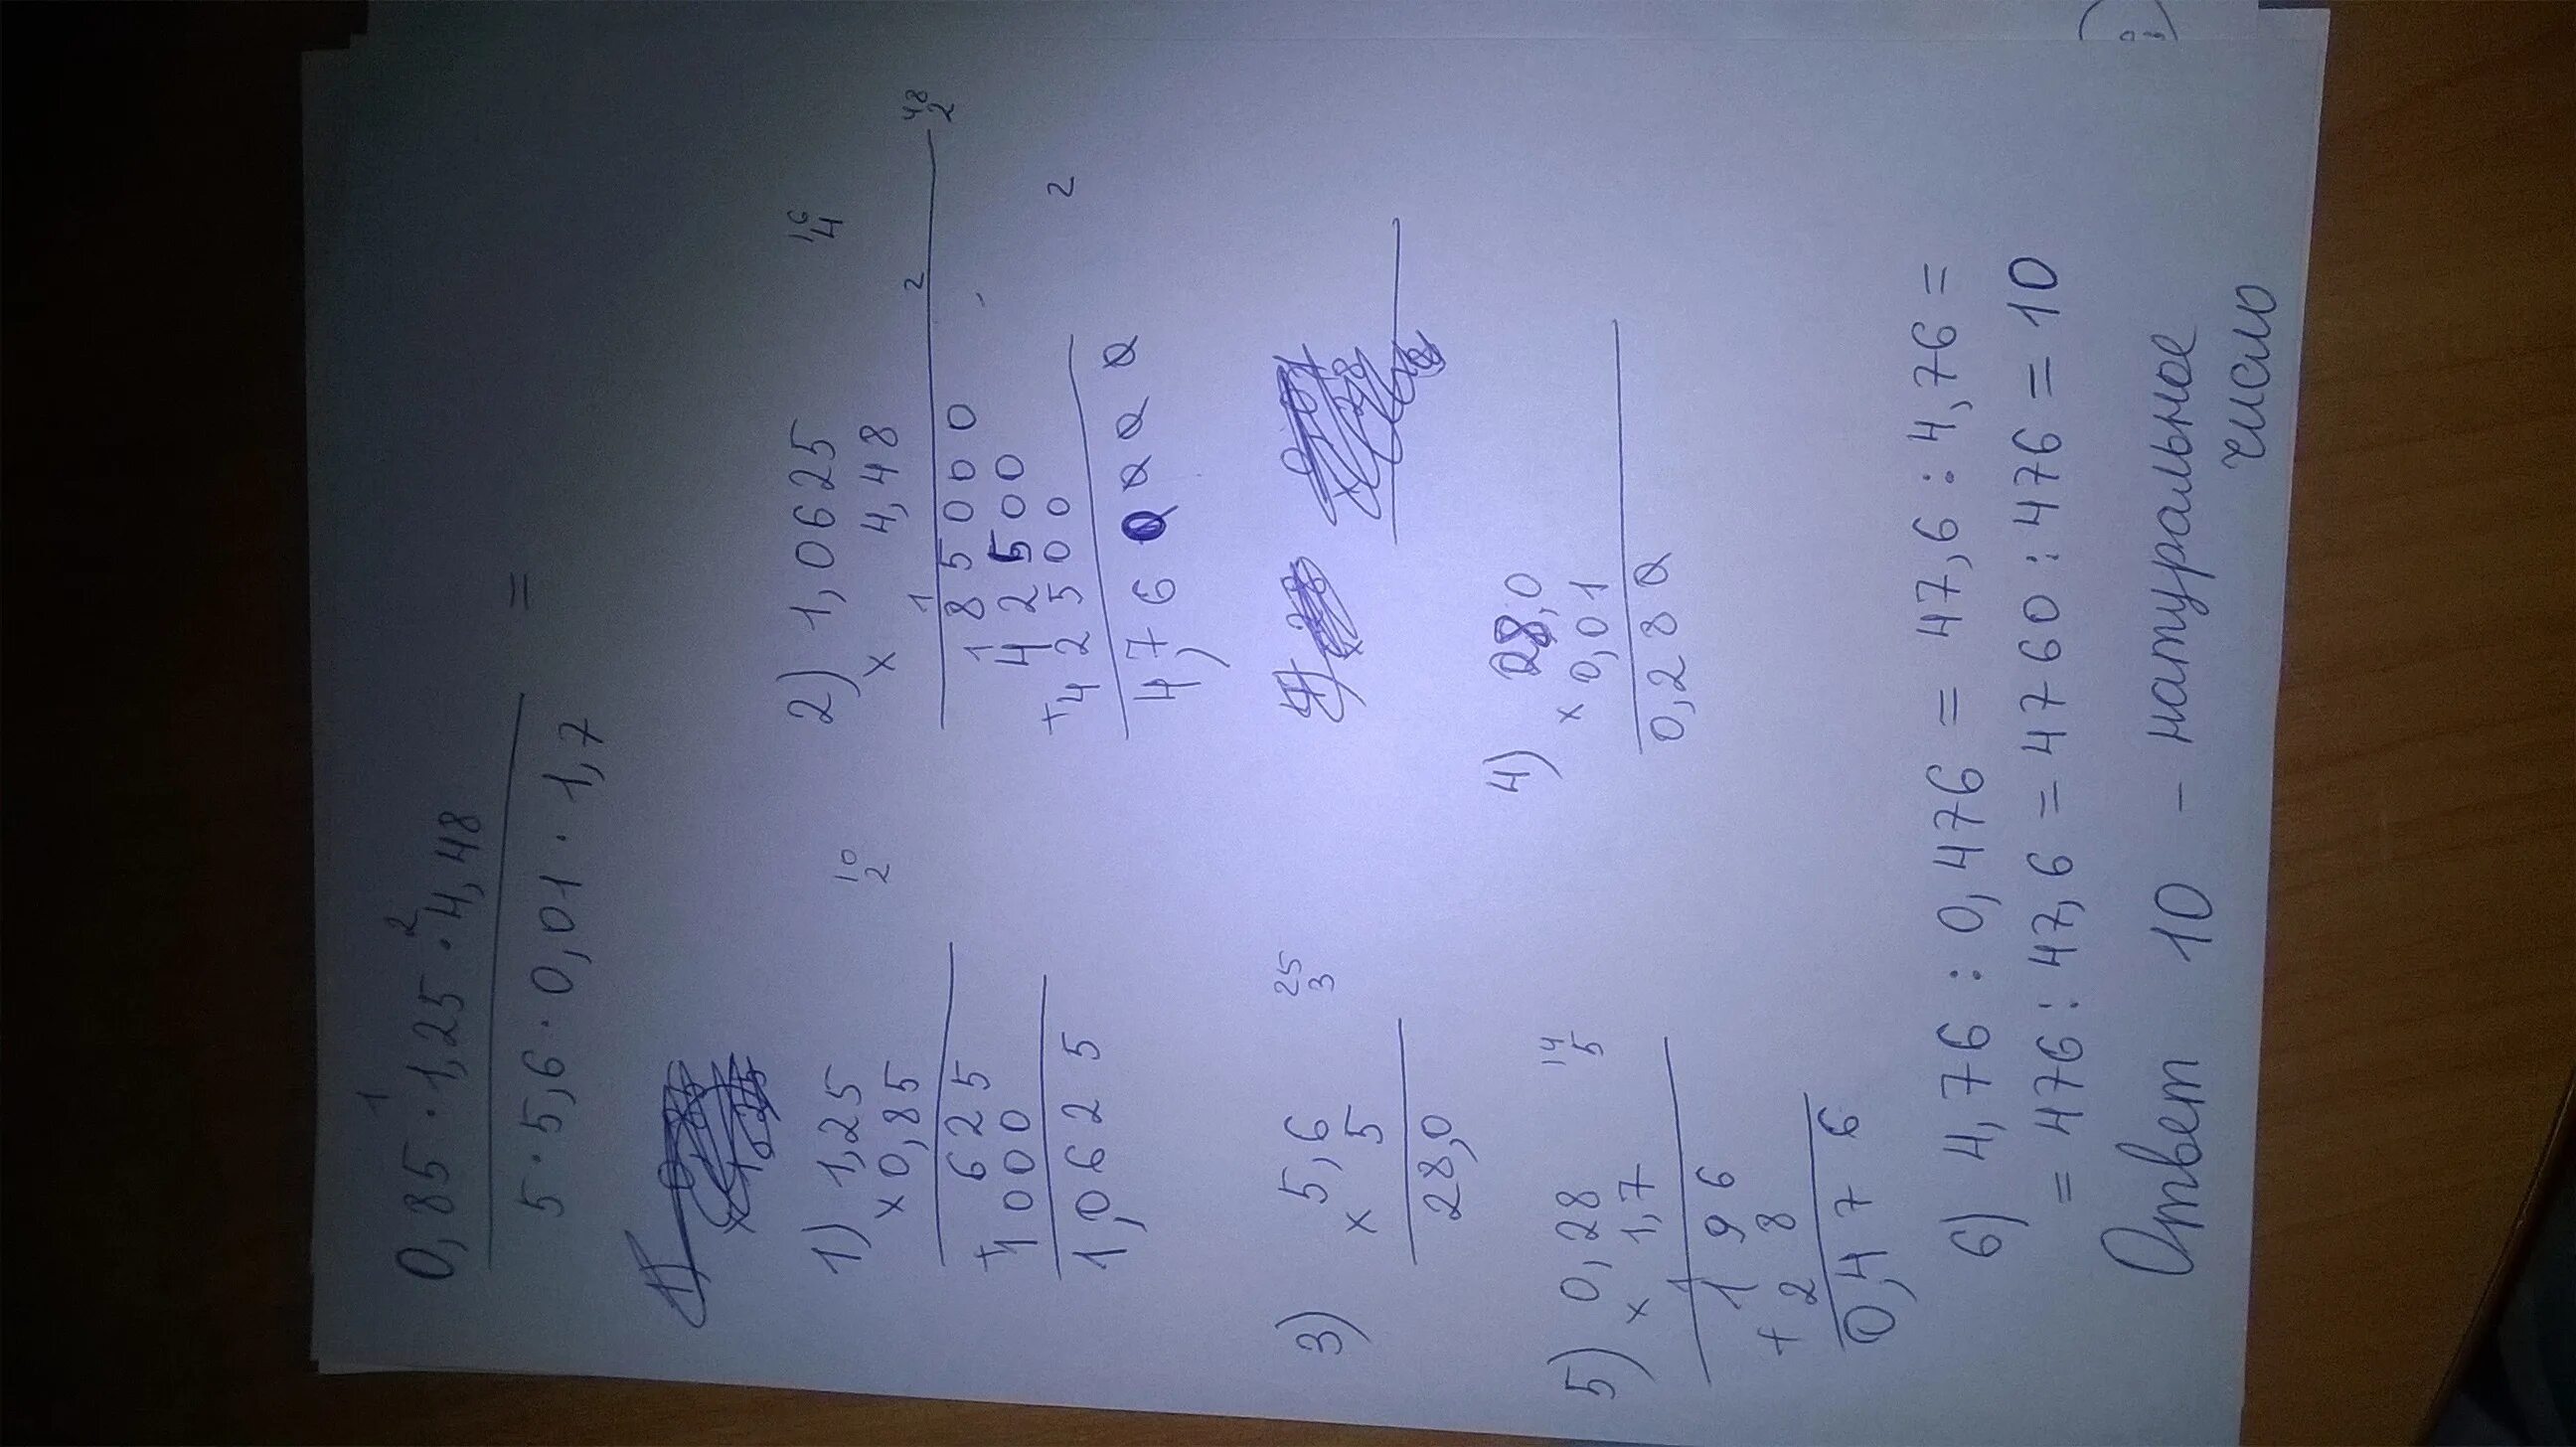 0,85 · 1,25 · 4,48
1 2
=
5 · 5,6 · 0,01 · 1,7
1) 1,25
× 0,85
10
2
625
+ 1000
1,0625
2) 1,0625
× 4,48
16
4
48
2
2
1
85000
1
42500
+ 42500
2
4,760000
3) 5,6
× 5
25
3
28,0
4) 28,0
× 0,01
0,280
5) 0,28
× 1,7
14
5
1
196
+ 28
0,476
6) 4,76 : 0,476 = 47,6 : 4,76 =
= 476 : 47,6 = 4760 : 476 = 10
Ответ 10 – натуральное
число